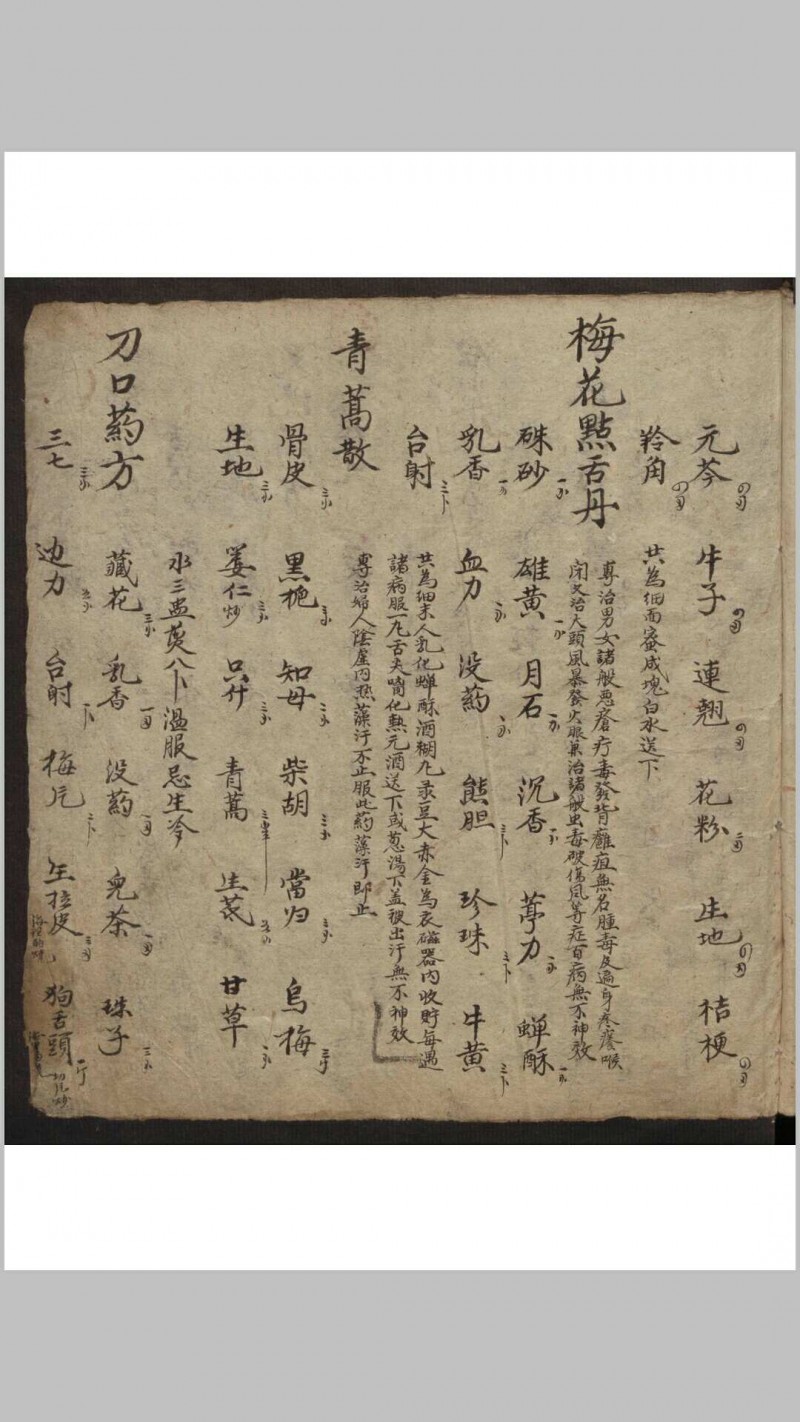 元芩 牛子 連翹 花粉 生地 桔梗
羚角 共為細面蜜成塊白水送下
梅花點舌丹
專治男女諸般悪瘡疔毒發背癰疽無名腫毒及遍身疼癢喉
閉又治大頭風暴發火眼兼治諸般虫毒破傷風等症百病無不神效
硃砂 雄黃 月石 沉香 葶力 蝉酥
乳香 血力 没药 熊胆 珍珠 牛黃
台射
共為細末人乳化蝉酥酒糊丸菉豆大赤金為衣磁器內收貯每遇
諸病服一丸舌尖噙化熱元酒送下或葱湯下盖被出汗無不神效
青蒿散
專治婦人陰虚內热藻汗不止服此药藻汗即止
骨皮 黑栀 知母 柴胡 當归 烏梅
生地 蒌仁炒 只什 青蒿 生芪 甘草
水三盅煎八卜温服忌生冷
刀口药方
藏花 乳香 没药 兒茶 珠子
三七 边力 台射 梅片 圡拉皮 狗舌頭